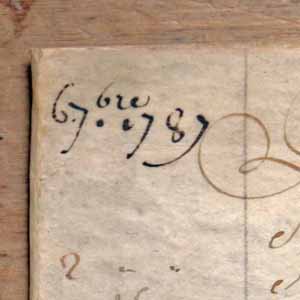 6 7.bre 1787
2 " "